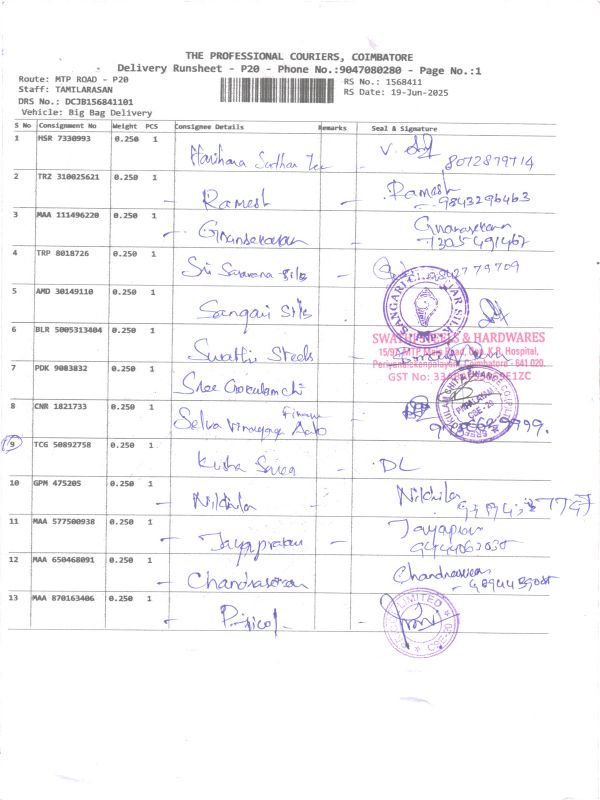 THE PROFESSIONAL COURIERS, COIMBATORE
Delivery Runsheet - P20 - Phone No.:9047080280 - Page No.:1
Route: MTP ROAD - P20
RS No.: 1568411
Staff: TAMILARASAN
RS Date: 19-Jun-2025
DRS No.: DCJB156841101
Vehicle: Big Bag Delivery
S No Consignment No Weight PCS Consignee Details Remarks Seal & Signature
1 HSR 7330993 0.250 1 Harihara Sudhan V. 8072879714
2 TRZ 310025621 0.250 1 - Ramesh - Ramesh - 9843296463
3 MAA 111496220 0.250 1 - Gnansekaran - Gnanasekaran 7305491467
4 TRP 8018726 0.250 1 Sri Saravana Silks -
5 AMD 30149110 0.250 1 Sangari Silks
SANGARI
SILK
6 BLR 5005313404 0.250 1 Swathi Steels
SWATHI STEELS & HARDWARES
15/9A MTP Main Road, Opp. K.R. Hospital,
Periyanaickenpalayam, Coimbatore - 641 020.
GST No: 33
E1ZC
7 PDK 9083832 0.250 1 Sree Gokulam Chi
8 CNR 1821733 0.250 1 Selva Vinayaga Auto Finance
CBE-20
9 TCG 50892758 0.250 1 - DL
10 GPM 475205 0.250 1 - Nikhila - Nikhila
11 MAA 577500938 0.250 1 - Jayaprakas - 9444063038
12 MAA 650468091 0.250 1 - Chandrasekaran - Chandrasekaran
13 MAA 870163406 0.250 1 - Pricol -
LIMITED
CBE-20